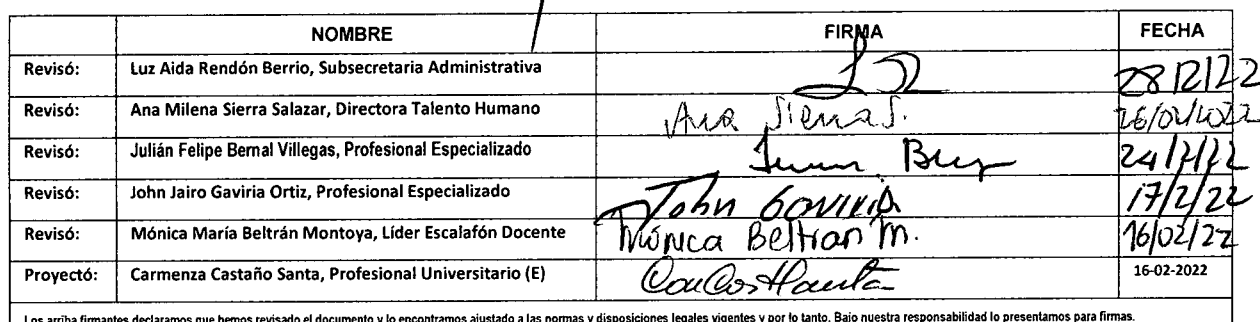 NOMBRE FIRMA FECHA
Revisó: Luz Aida Rendón Berrio, Subsecretaria Administrativa 28/2/22
Revisó: Ana Milena Sierra Salazar, Directora Talento Humano Ana Sierra S. 26/02/2022
Revisó: Julián Felipe Bernal Villegas, Profesional Especializado 24/2/22
Revisó: John Jairo Gaviria Ortiz, Profesional Especializado John Gaviria 17/2/22
Revisó: Mónica María Beltrán Montoya, Líder Escalafón Docente Mónica Beltran M. 16/02/22
Proyectó: Carmenza Castaño Santa, Profesional Universitario (E) 16-02-2022
Los arriba firmantes declaramos que hemos revisado el documento y lo encontramos ajustado a las normas y disposiciones legales vigentes y por lo tanto. Bajo nuestra responsabilidad lo presentamos para firmas.